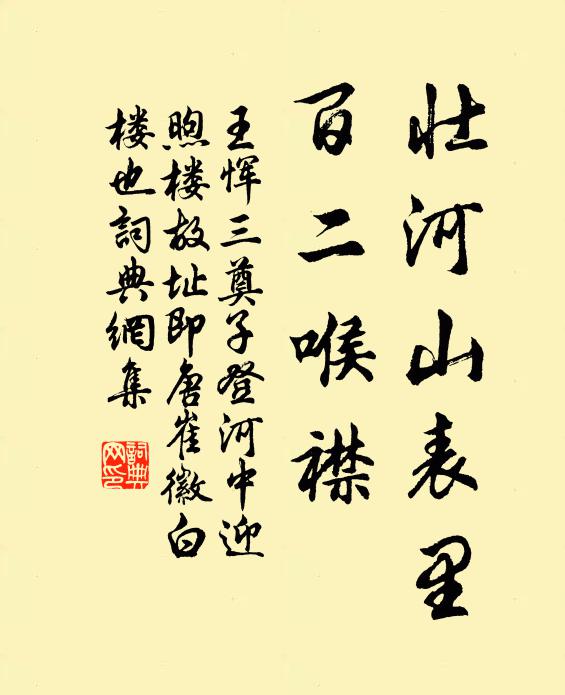 壮河山表里
百二喉襟
王恽三奠子登河中迎
煦楼故址即唐崔徽白
楼也詞典網集
詞典
网印